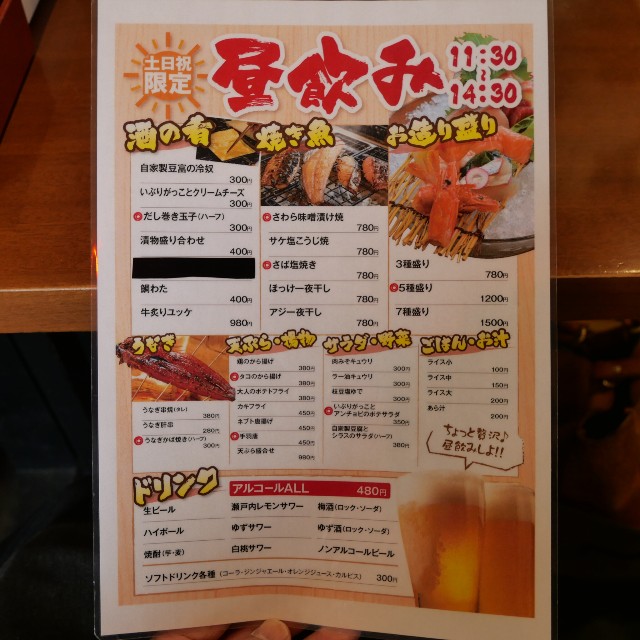 土日祝
限定
昼飲み
11:30
〜
14:30
酒の肴
自家製豆富の冷奴
300円
いぶりがっことクリームチーズ
300円
だし巻き玉子(ハーフ)
300円
漬物盛り合わせ
400円
鯛わた
400円
牛炙りユッケ
980円
焼き魚
さわら味噌漬け焼
780円
サケ塩こうじ焼
780円
さば塩焼き
780円
ほっけ一夜干し
780円
アジ一夜干し
780円
お造り盛り
3種盛り
780円
5種盛り
1200円
7種盛り
1500円
うなぎ
うなぎ串焼(タレ)
380円
うなぎ肝串
280円
うなぎかば焼き(ハーフ)
300円
天ぷら・揚物
鶏のから揚げ
380円
タコのから揚げ
380円
大人のポテトフライ
380円
カキフライ
450円
ネブト唐揚げ
450円
手羽揚
450円
天ぷら盛合せ
980円
サラダ・野菜
肉みそキュウリ
300円
ラー油キュウリ
300円
枝豆塩ゆで
300円
いぶりがっこと
アンチョビのポテサラダ
350円
自家製豆腐と
シラスのサラダ(ハーフ)
380円
ごはん・お汁
ライス小
100円
ライス中
150円
ライス大
200円
あら汁
200円
ちょっと贅沢♪
昼飲みしよ!!
ドリンク
アルコールALL 480円
生ビール 瀬戸内レモンサワー 梅酒(ロック・ソーダ)
ハイボール ゆずサワー ゆず酒(ロック・ソーダ)
焼酎(芋・麦) 白桃サワー ノンアルコールビール
ソフトドリンク各種 (コーラ・ジンジャエール・オレンジジュース・カルピス) 300円